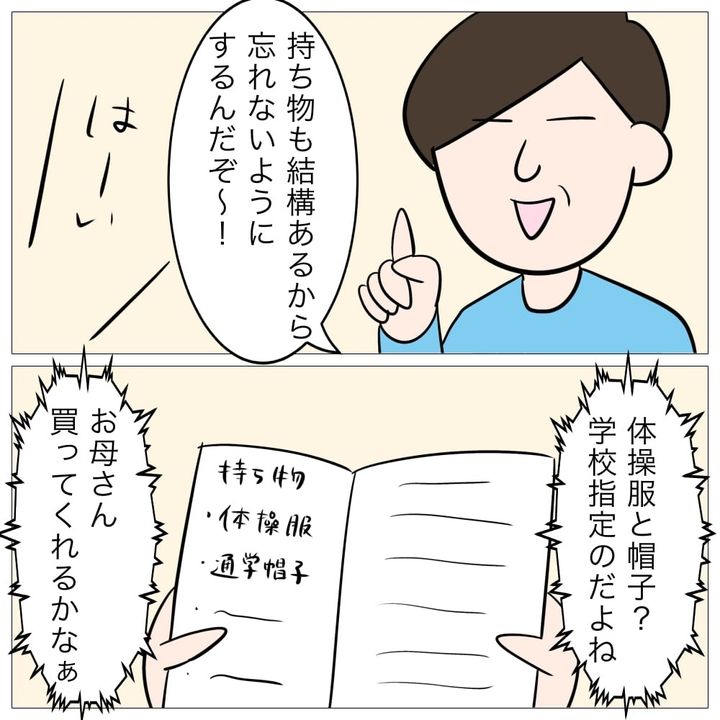 持ち物も結構あるから
忘れないように
するんだぞ〜！
はーい
体操服と帽子？
学校指定のだよね
持ち物
・体操服
・通学帽子
お母さん
買ってくれるかなぁ